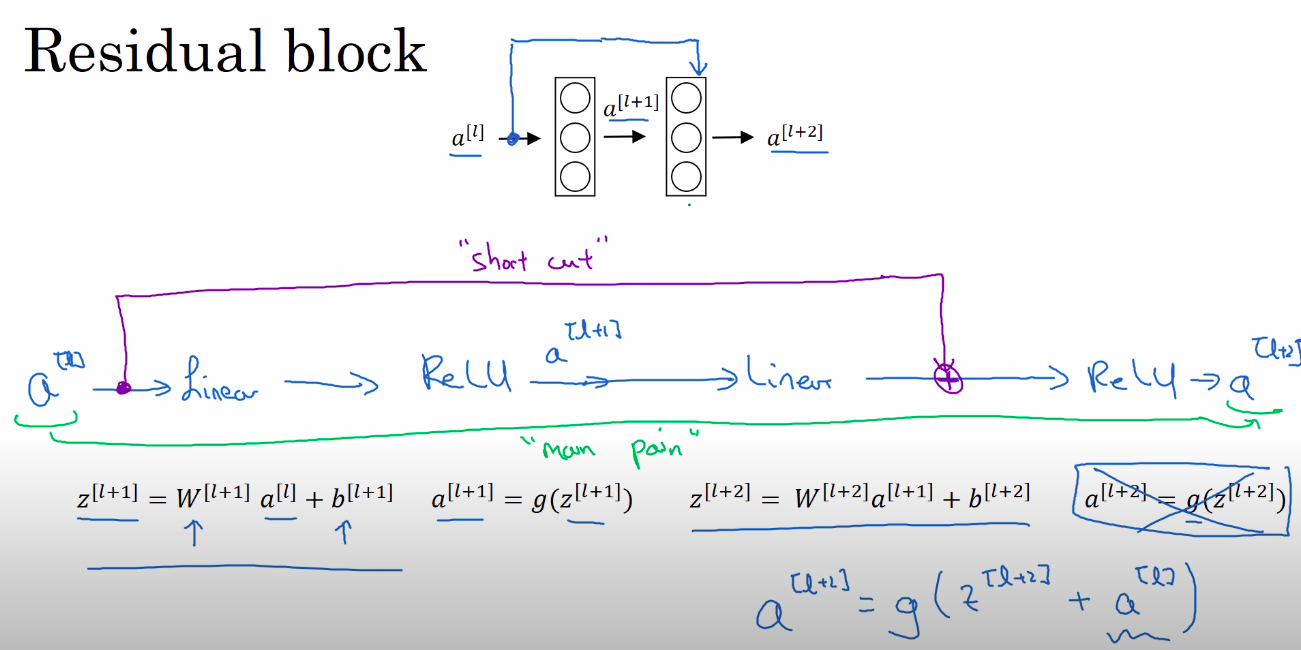 Residual block
a^[l] a^[l+1] a^[l+2]
"short cut"
a^[l] Linear ReLU a^[l+1] Linear ReLU a^[l+2]
"main path"
z^[l+1] = W^[l+1] a^[l] + b^[l+1] a^[l+1] = g(z^[l+1]) z^[l+2] = W^[l+2]a^[l+1] + b^[l+2] a^[l+2] = g(z^[l+2])
a^[l+2] = g(z^[l+2] + a^[l])